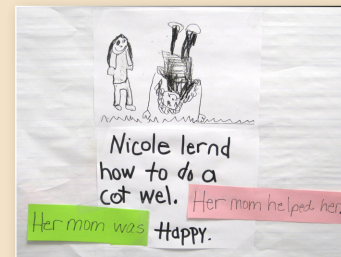 Nicole lernd
how to do a
cot wel. Her mom helped her.
Her mom was Happy.